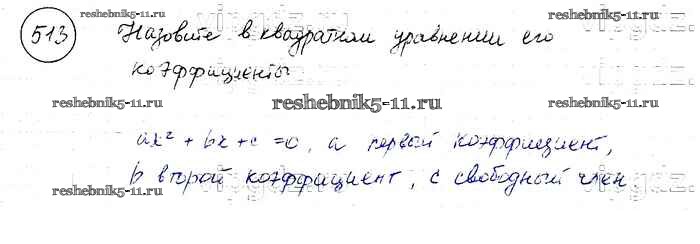 reshebnik5-11.ru
513 Назовите в квадратном уравнении его
коэффициенты
reshebnik5-11.ru
reshebnik5-11.ru
ax² + bx + c = 0, a первый коэффициент,
b второй коэффициент, c свободный член
reshebnik5-11.ru